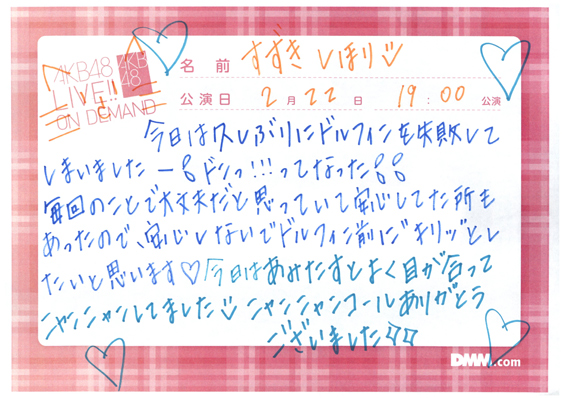 AKB48
LIVE!!
ON DEMAND
AKB
48
名前 すずき しほり
公演日 2月22日 19:00公演
今日は久しぶりにドルフィンを失敗して
しまいましたー ドシっ!!!ってなった
毎回のことで大丈夫だと思っていて安心してた所も
あったので、安心しないでドルフィン前に"キリッ"とし
たいと思います♡今日はあみたすとよく目が合って
ニャンニャンしてました ニャンニャンコールありがとう
ございました
DMM.com